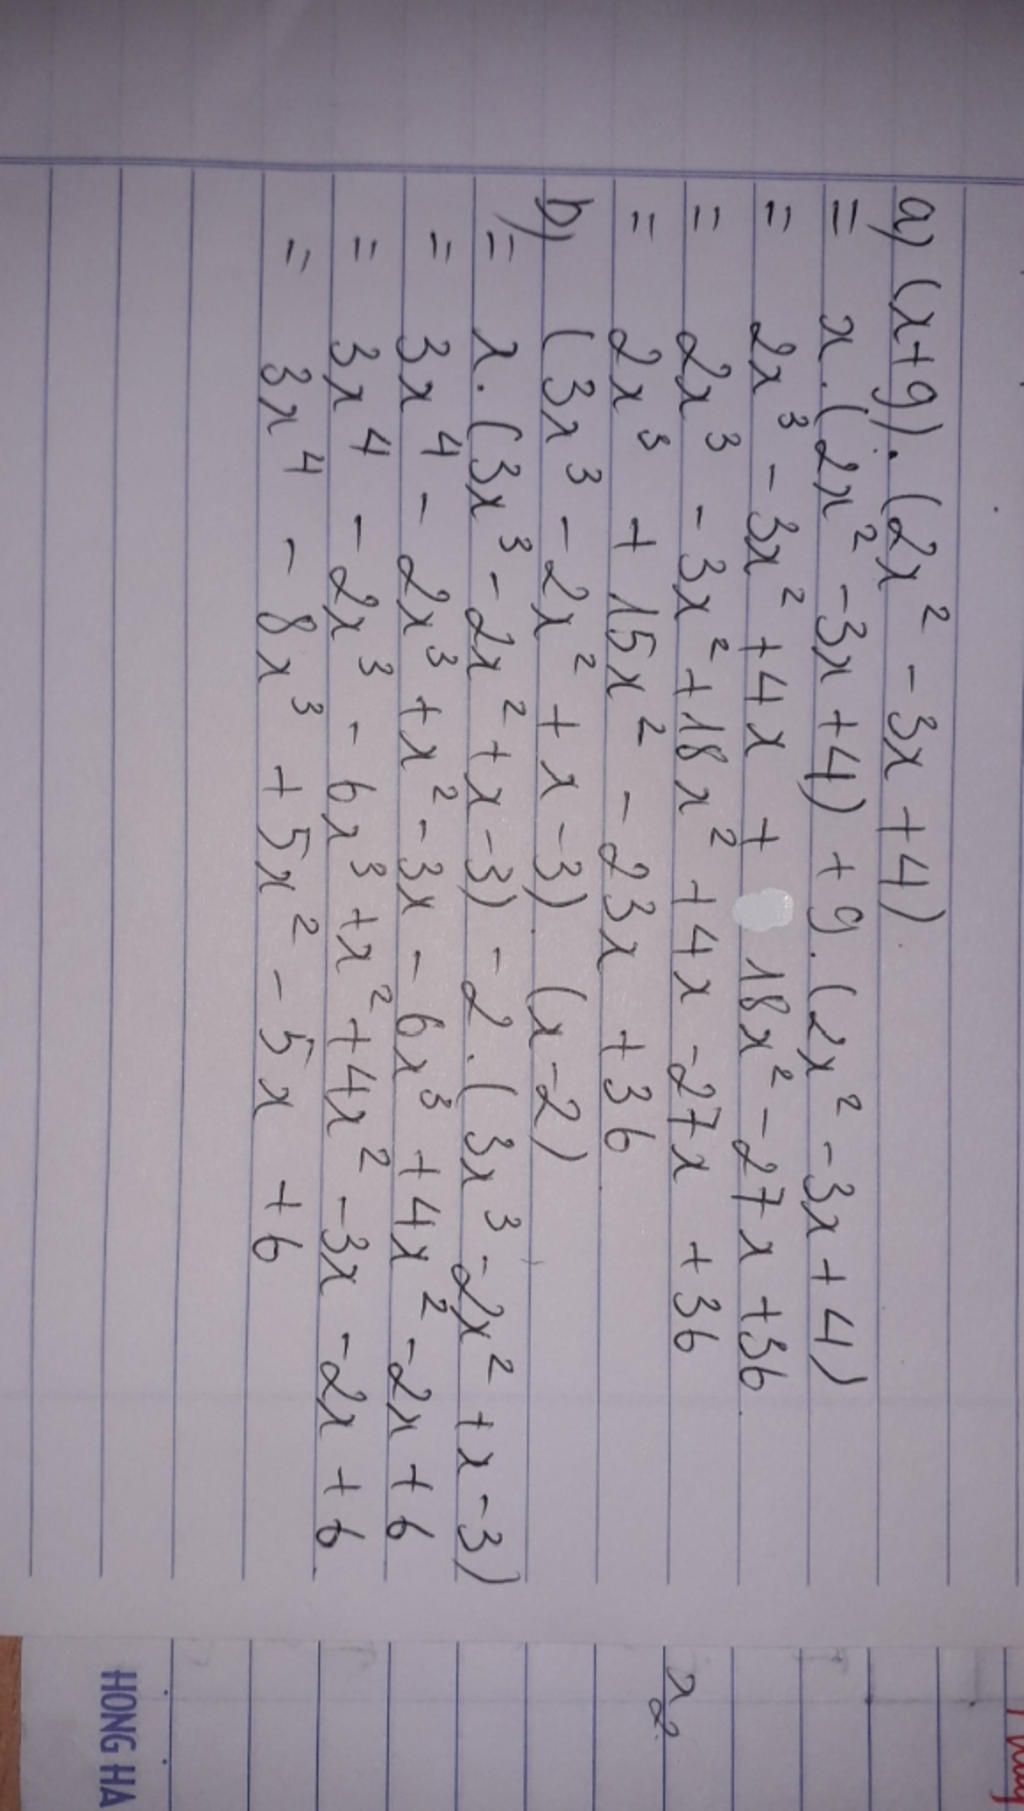 a) (x+9).(2x² - 3x + 4)
= x.(2x² - 3x + 4) + 9.(2x² - 3x + 4)
= 2x³ - 3x² + 4x + 18x² - 27x + 36
= 2x³ - 3x² + 18x² + 4x - 27x + 36
= 2x³ + 15x² - 23x + 36
b) (3x³ - 2x² + x - 3).(x - 2)
= x.(3x³ - 2x² + x - 3) - 2.(3x³ - 2x² + x - 3)
= 3x⁴ - 2x³ + x² - 3x - 6x³ + 4x² - 2x + 6
= 3x⁴ - 2x³ - 6x³ + x² + 4x² - 3x - 2x + 6
= 3x⁴ - 8x³ + 5x² - 5x + 6
x2
HONG HA